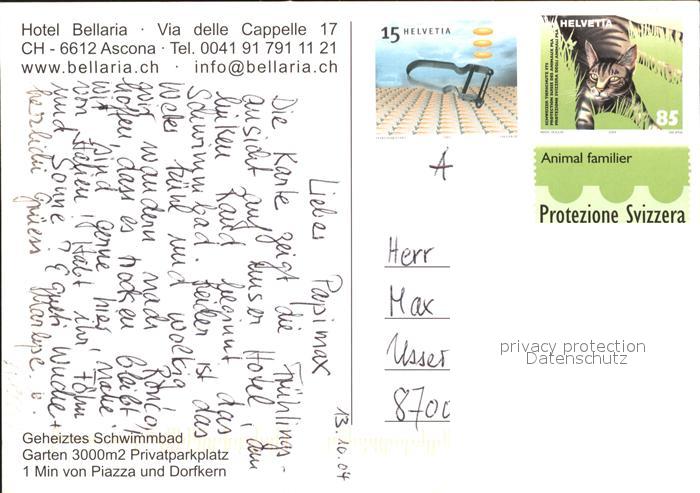 Hotel Bellaria · Via delle Cappelle 17
CH - 6612 Ascona · Tel. 0041 91 791 11 21
www.bellaria.ch · info@bellaria.ch
15 HELVETIA
HELVETIA
85
Animal familier
Protezione Svizzera
A
13.10.04
Liebes Papimax
Die Karte zeigt die Frühlings-
ansicht auf unser Hotel, am
linken Rand beginnt das
Schwimmbad. Leider ist das
Wetter trüb und wolkig
wandern nach Ronco,
hoffen, dass es trocken bleibt.
Wir sind gerne hier, nahe
von Italien. Habt ihr
und Sonne?
herzlichi Grüess
Herr
Max
Usser
8700
privacy protection
Datenschutz
Geheiztes Schwimmbad
Garten 3000m2 Privatparkplatz
1 Min von Piazza und Dorfkern